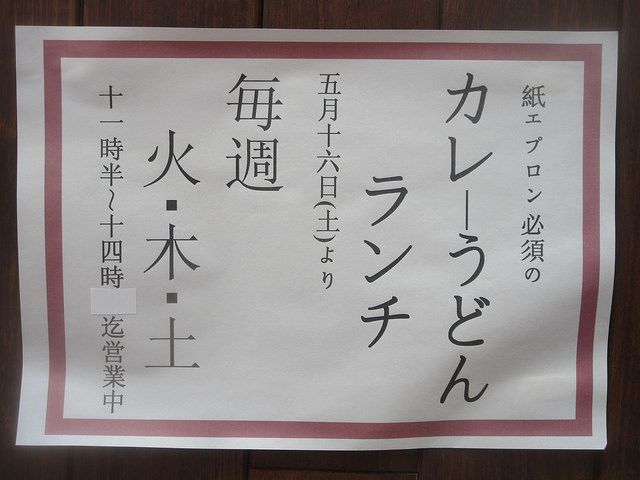 紙エプロン必須の
カレーうどん
ランチ
五月十六日(土)より
毎週
火・木・土
十一時半～十四時迄営業中